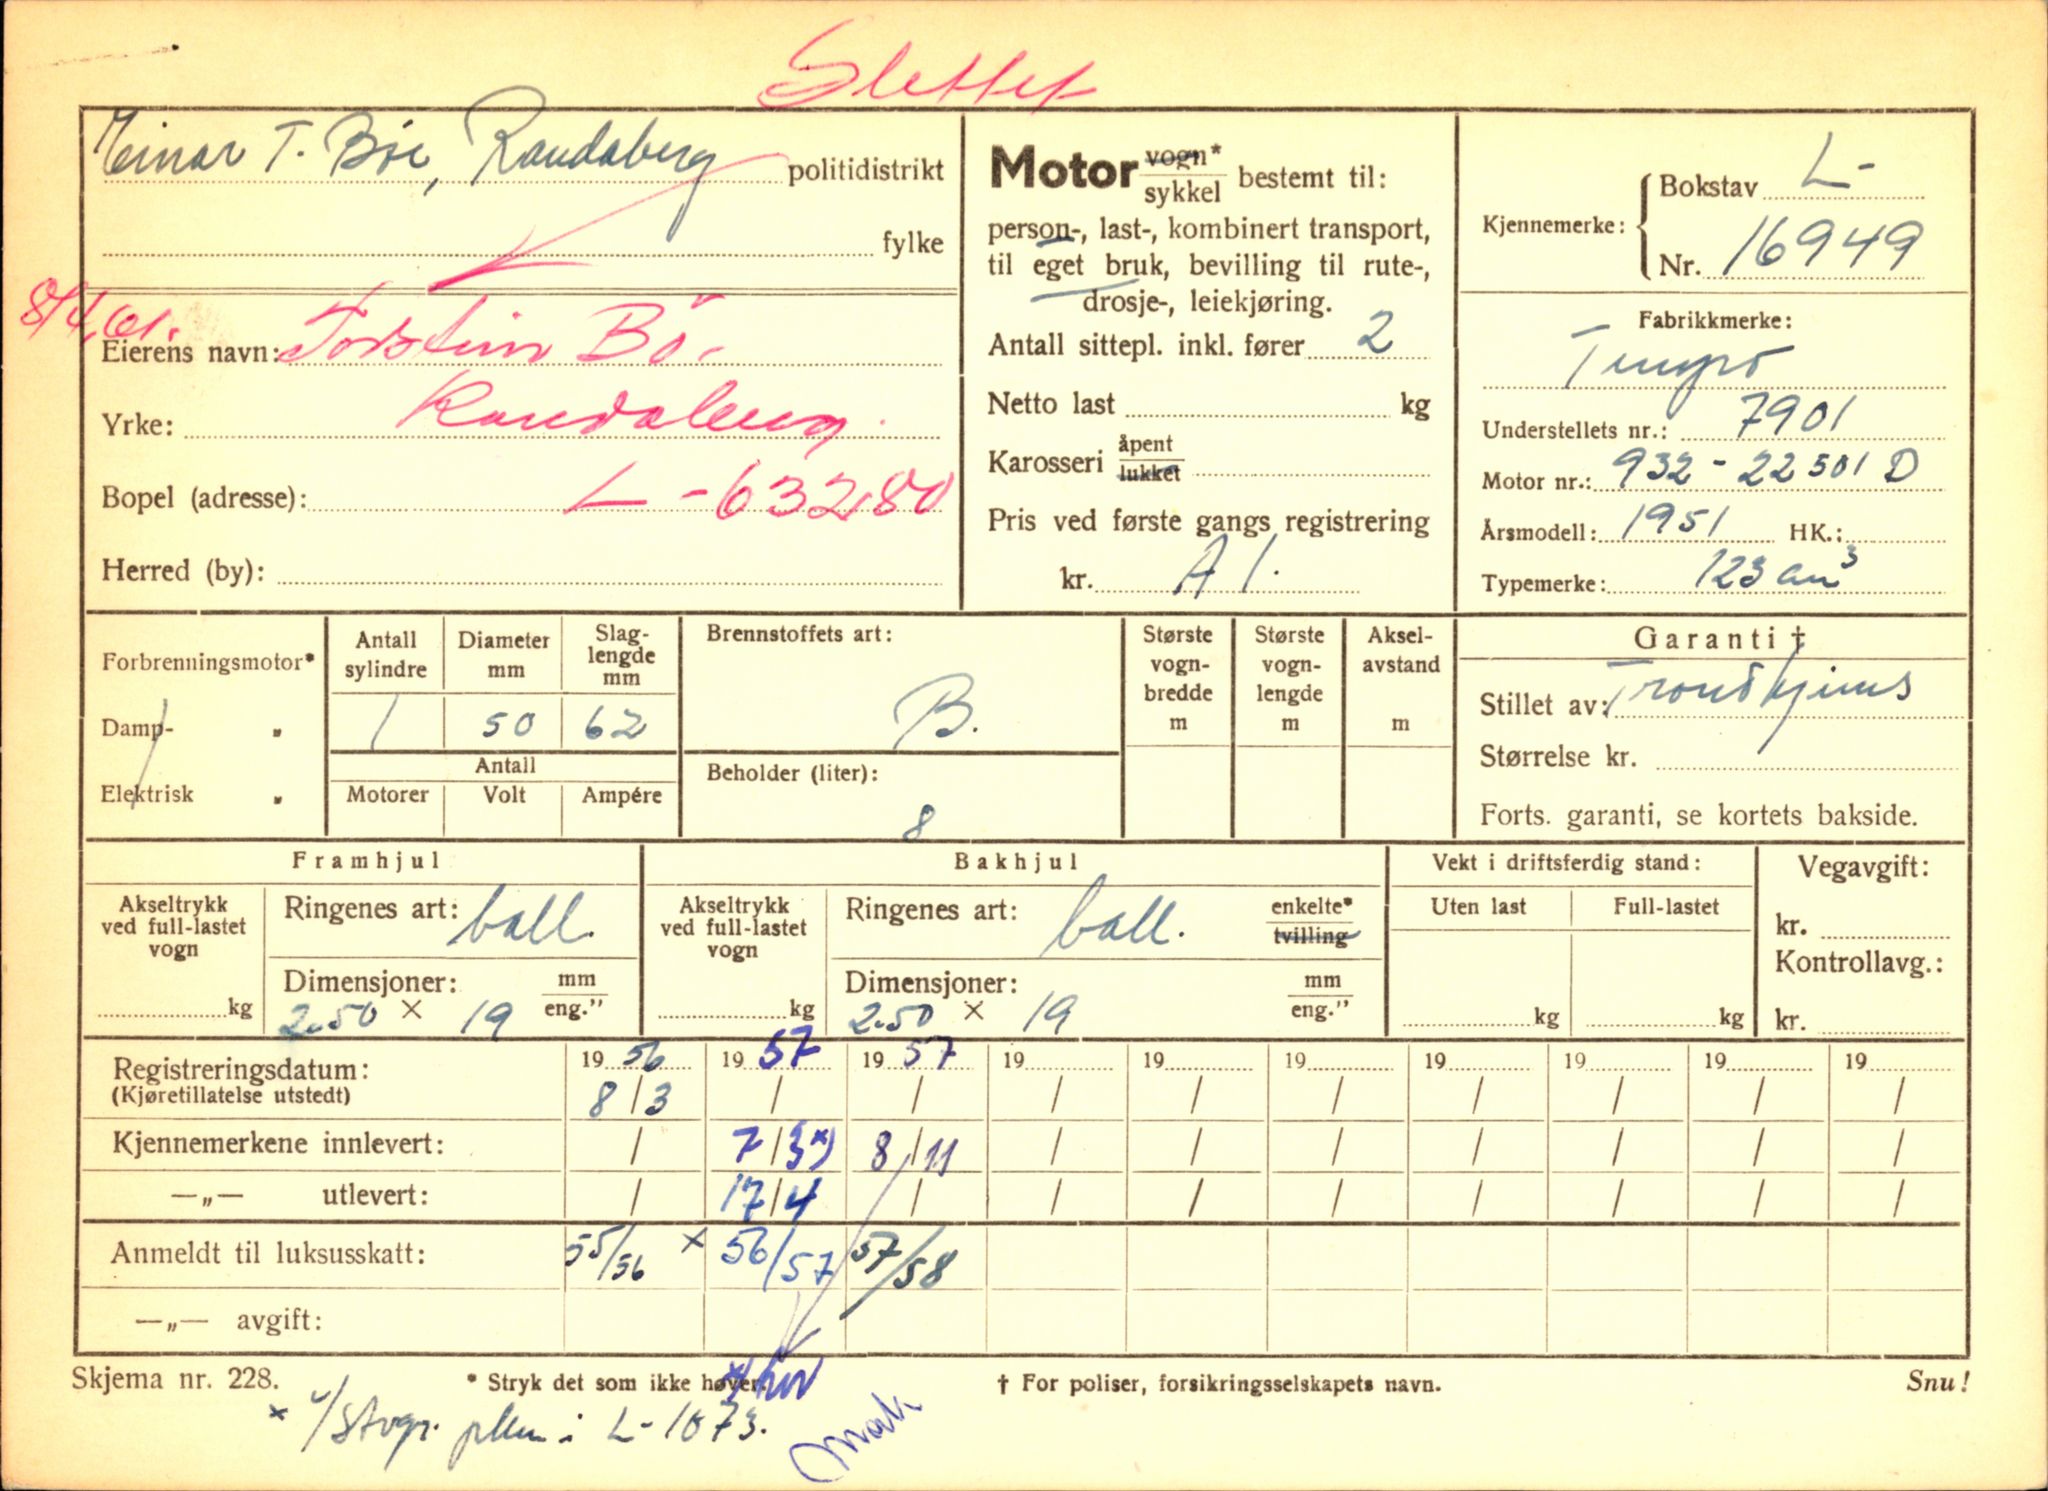 Slettet
Einar T. Bøe, Randaberg politidistrikt
fylke
8/4.61.
Eierens navn: Torstein Bø.
Yrke: Randaberg.
Bopel (adresse): L-63280
Herred (by):
Motor vogn*
sykkel bestemt til:
person-, last-, kombinert transport,
til eget bruk, bevilling til rute-,
drosje-, leiekjøring.
Antall sittepl. inkl. fører 2
Netto last kg
Karosseri åpent
lukket
Pris ved første gangs registrering
kr. A 1.
Kjennemerke: Bokstav L-
Nr. 16949
Fabrikkmerke:
Tempo
Understellets nr.: 7901
Motor nr.: 932-22501 D
Årsmodell: 1951 HK.:
Typemerke: 123 cm³
Forbrenningsmotor*
Damp- "
Elektrisk "
Antall sylindre
1
Diameter mm
50
Slag-lengde mm
62
Antall
Motorer Volt Ampére
Brennstoffets art:
B.
Beholder (liter):
8
Største vogn-bredde m
Største vogn-lengde m
Aksel-avstand m
Garanti †
Stillet av: Trondhjems
Størrelse kr.
Forts. garanti, se kortets bakside.
Framhjul
Akseltrykk ved full-lastet vogn
kg
Ringenes art: ball.
Dimensjoner: mm
2.50 × 19 eng."
Bakhjul
Akseltrykk ved full-lastet vogn
kg
Ringenes art: ball. enkelte*
tvilling
Dimensjoner: mm
2.50 × 19 eng."
Vekt i driftsferdig stand:
Uten last Full-lastet
kg kg
Vegavgift:
kr.
Kontrollavg.:
kr.
Registreringsdatum: 19 56 19 57 19 57 19 19 19 19 19 19 19
(Kjøretillatelse utstedt) 8/3 / / / / / / / / /
Kjennemerkene innlevert: / 7/3 *) 8/11 / / / / / / /
—„— utlevert: / 17/4 / / / / / / / /
Anmeldt til luksusskatt: 55/56 × 56/57 57/58
—„— avgift:
Skjema nr. 228. * Stryk det som ikke høver. † For poliser, forsikringsselskapets navn. Snu!
× L-1073.